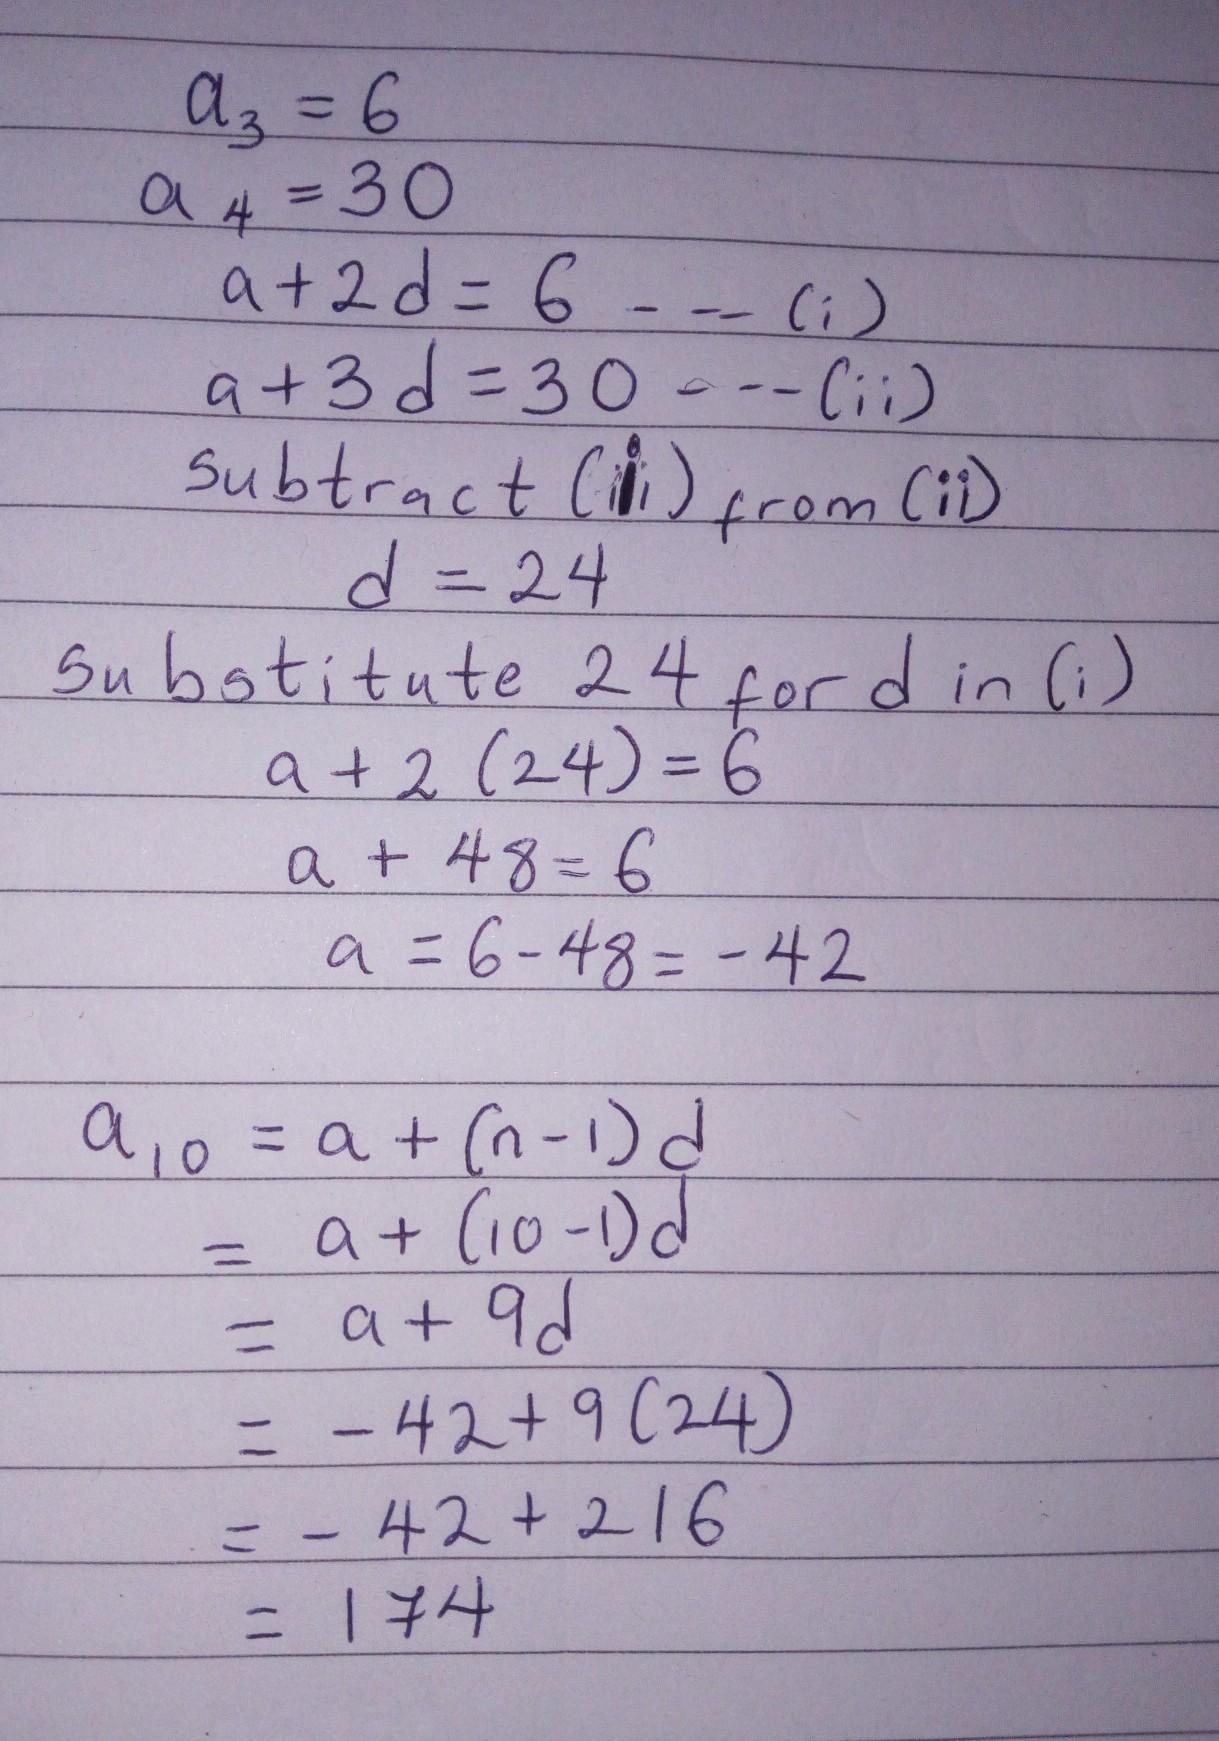 a₃ = 6
a₄ = 30
a + 2d = 6 - - -- (i)
a + 3d = 30 - - - - (ii)
subtract (i) from (ii)
d = 24
substitute 24 for d in (i)
a + 2 (24) = 6
a + 48 = 6
a = 6 - 48 = - 42
a₁₀ = a + (n - 1) d
= a + (10 - 1) d
= a + 9d
= - 42 + 9 (24)
= - 42 + 216
= 174